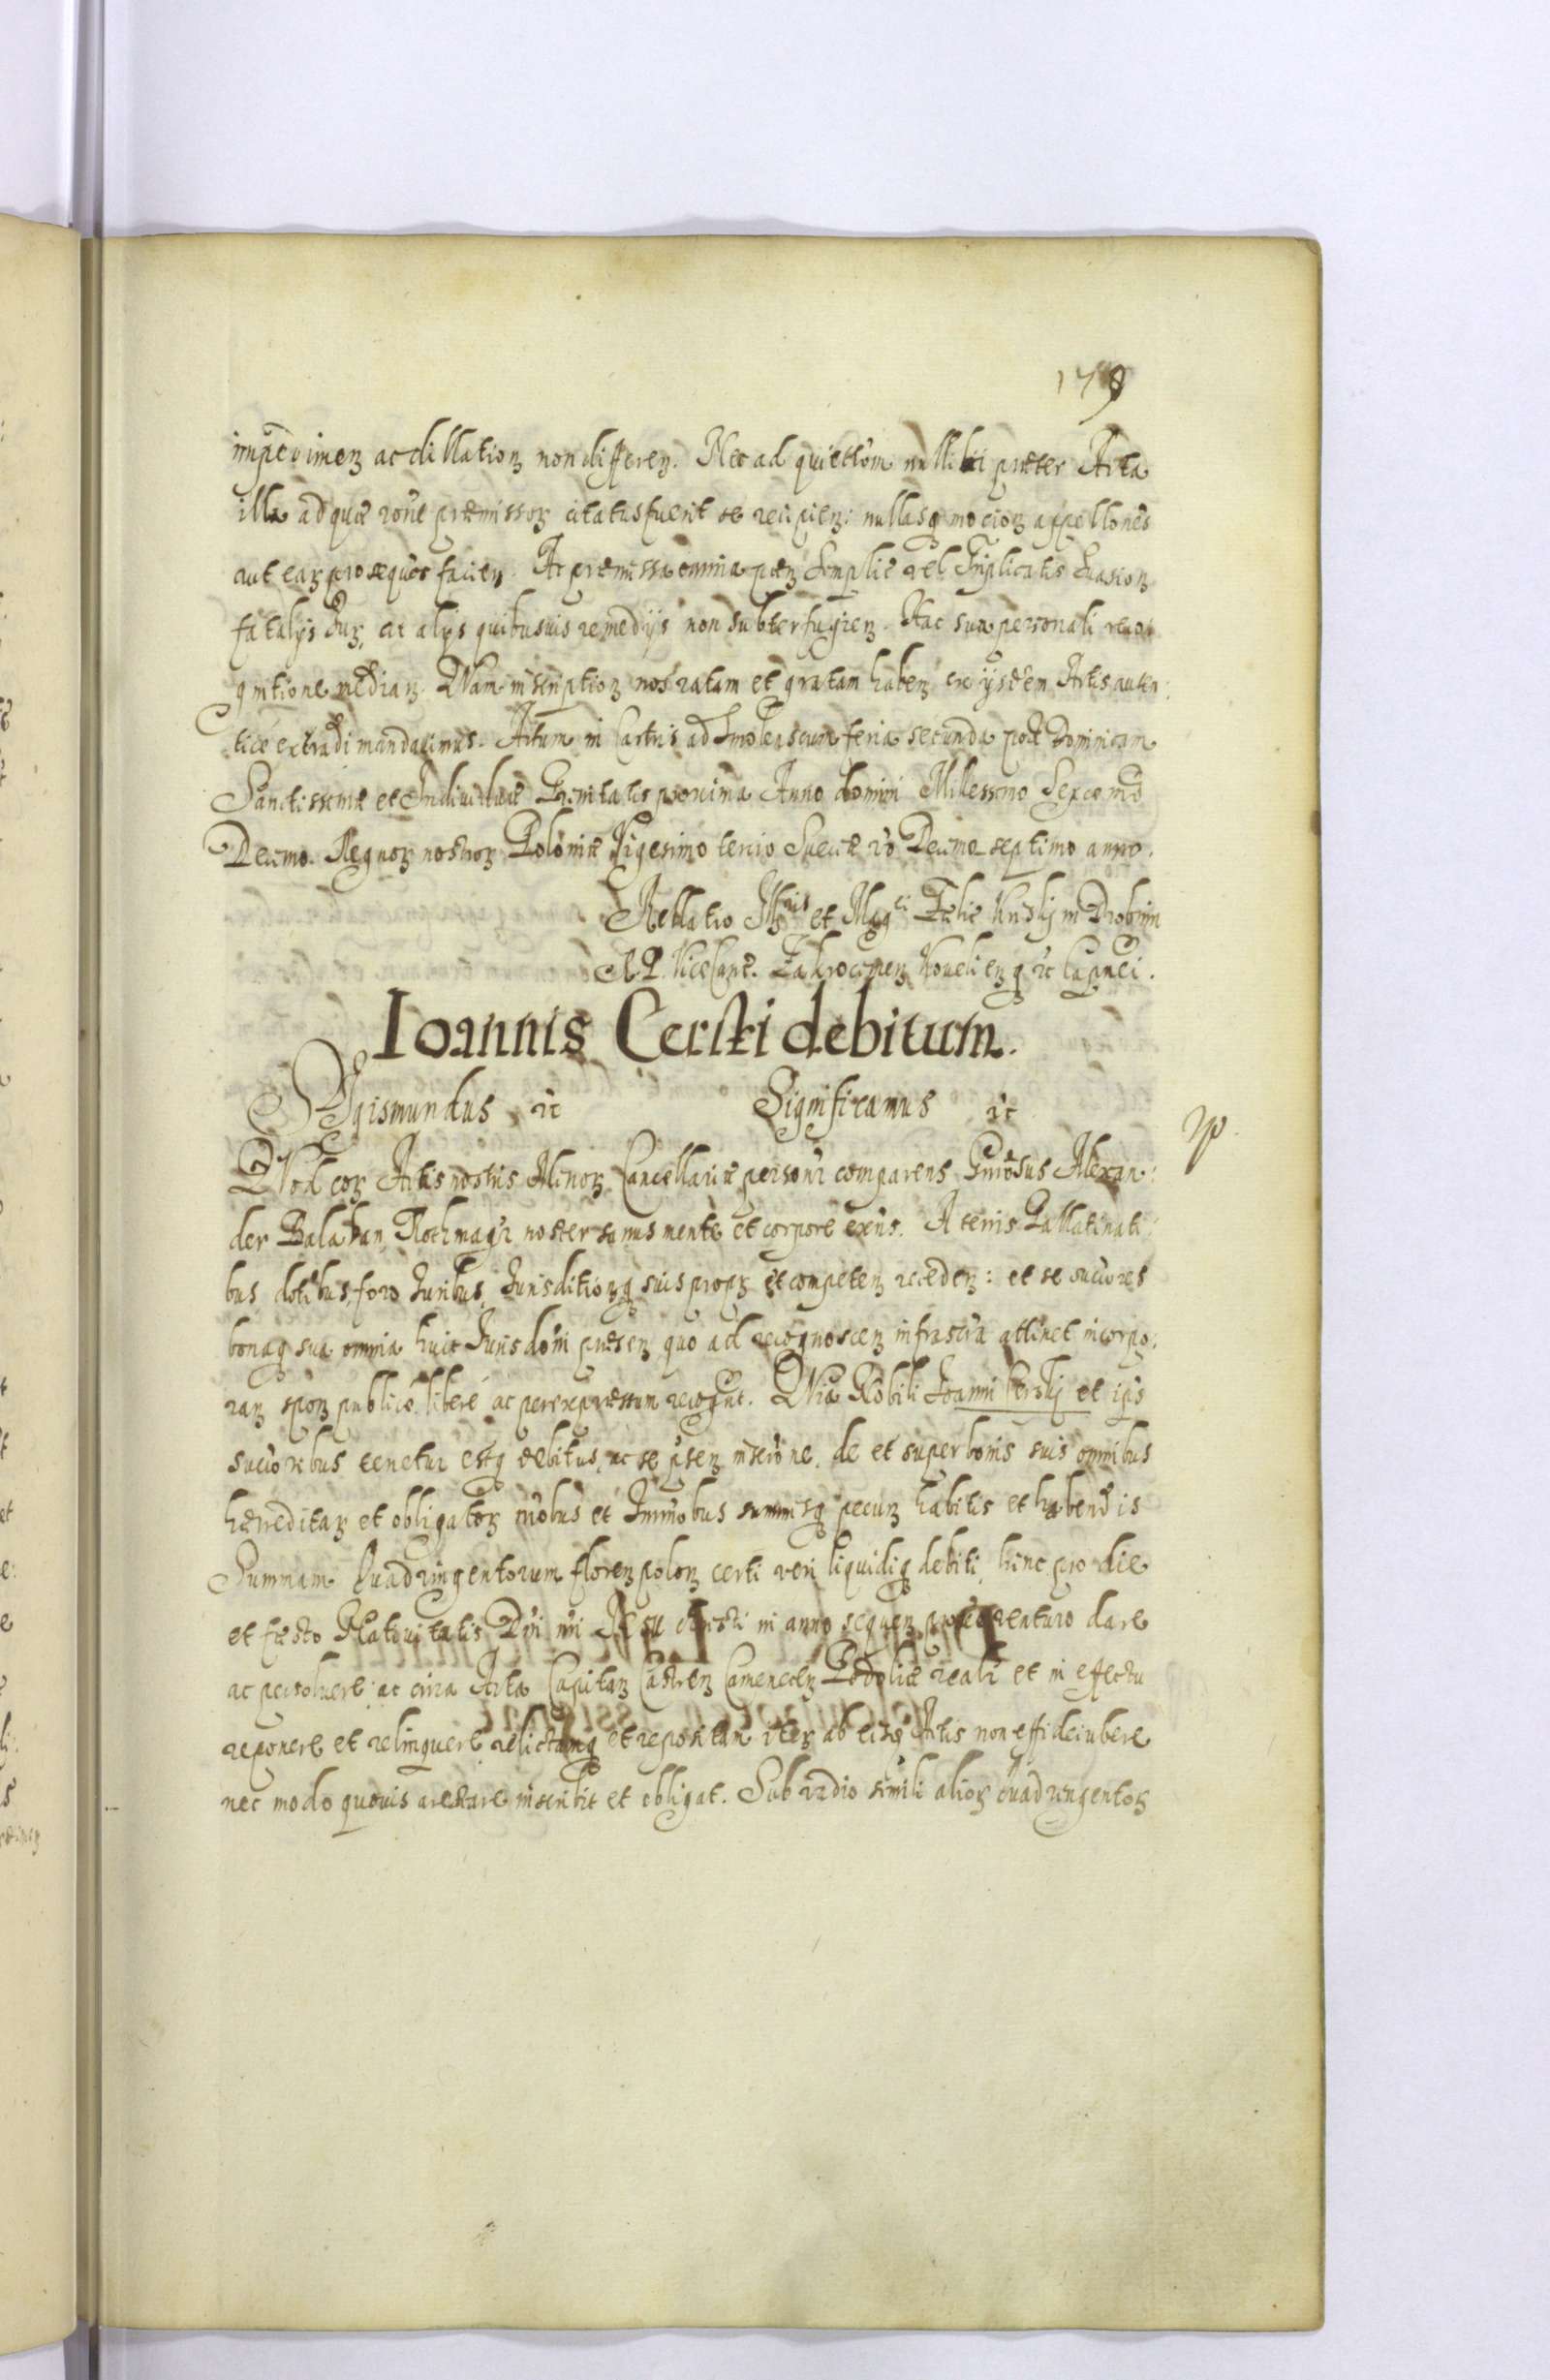 179
impedimen ac dillation non differen. Nec ad quiettom nullibi præter Acta
illa ad quæ rone præmissor citatus fuerit se recipien: nullasq mocion appellones
aut ear prosequor facien. Ac præmissa omnia pœn Simplic vel Triplicatis Euasion
fatalys Jur, ac alys quibusuis remedijs non subterfugien. Hac sua personali recog
gnitione median. QVam inscription nos ratam et gratam haben ex ijsdem Actis auten:
tice extradi mandauimus. Actum in Castris ad Smolenscum feria secunda post Dominicam
Sanctissimæ et Indiuiduæ Trinitatis proxima Anno domini Millessimo Sexcento
Decimo. Regnor nostror Poloniæ Vigesimo tercio Sueciæ vo Decimo septimo anno.
Rellatio Illris et Magci Felic Kriskj in Drobnin
R. P. ViceCanc. Zakrocimen Kovelien q rc Capnei.
Ioannis Cerski debitum.
SIgismundus rc Significamus rc
QVod cor Actis nostris Minor Cancellariæ personr comparens Gnrosus Alexan:
der Balaban Rothmagr noster sanus mente et corpore exns. A terris Pallatinati:
bus dotibus, foro Juribus, Jurisditionq suis propr et competen receden: et se succores
bonaq sua omnia huic Jurisdoni præsen quo ad recognoscen infrascra attinet incorpo:
ran spon publice libere ac per expressum recognt. QVia Nobili Joanni Cerskj et ips
succoribus tenetur estq debitus, ac se psen inscrone, de et super bonis suis omnibus
hæreditar et obligator mobus et Immobus summisq pecun habitis et habendis
Summam Quadringentorum floren polon certi veri liquidiq debiti, hinc pro die
et festo Natiuitatis Dni nri Jesu Christi in anno sequen proxe venturo dare
ac persoluere ac circa Acta Capitan Castren Camenecen Podoliæ realr et in effectu
reponere et relinquere relictamq et repositam iter ab eisq Actis non effideiubere
nec modo quouis arestare inscribit et obligat. Sub vadio simili alior quadringentor